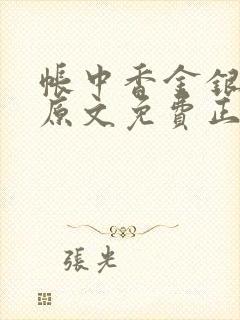 帳中香金銀
原文免費正
張光